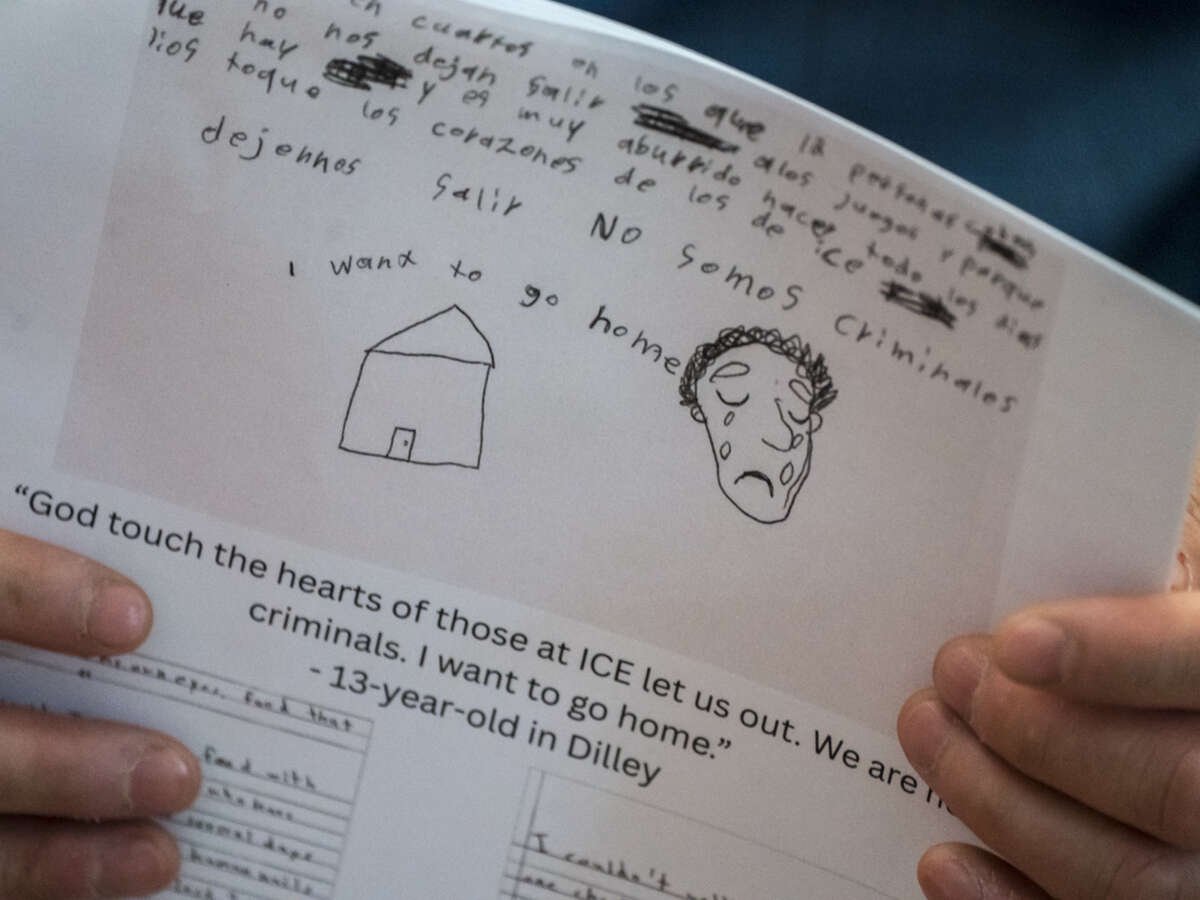 cuartos en los que la personas
no nos dejan salir alos juegos y porque
que hay y es muy aburrido hacer todo los dias
toque los corazones de los de ice
dejennos salir NO somos criminales
I want to go home
“God touch the hearts of those at ICE let us out. We are
criminals. I want to go home.”
- 13-year-old in Dilley
food that
food with
normal days
I couldn't
one